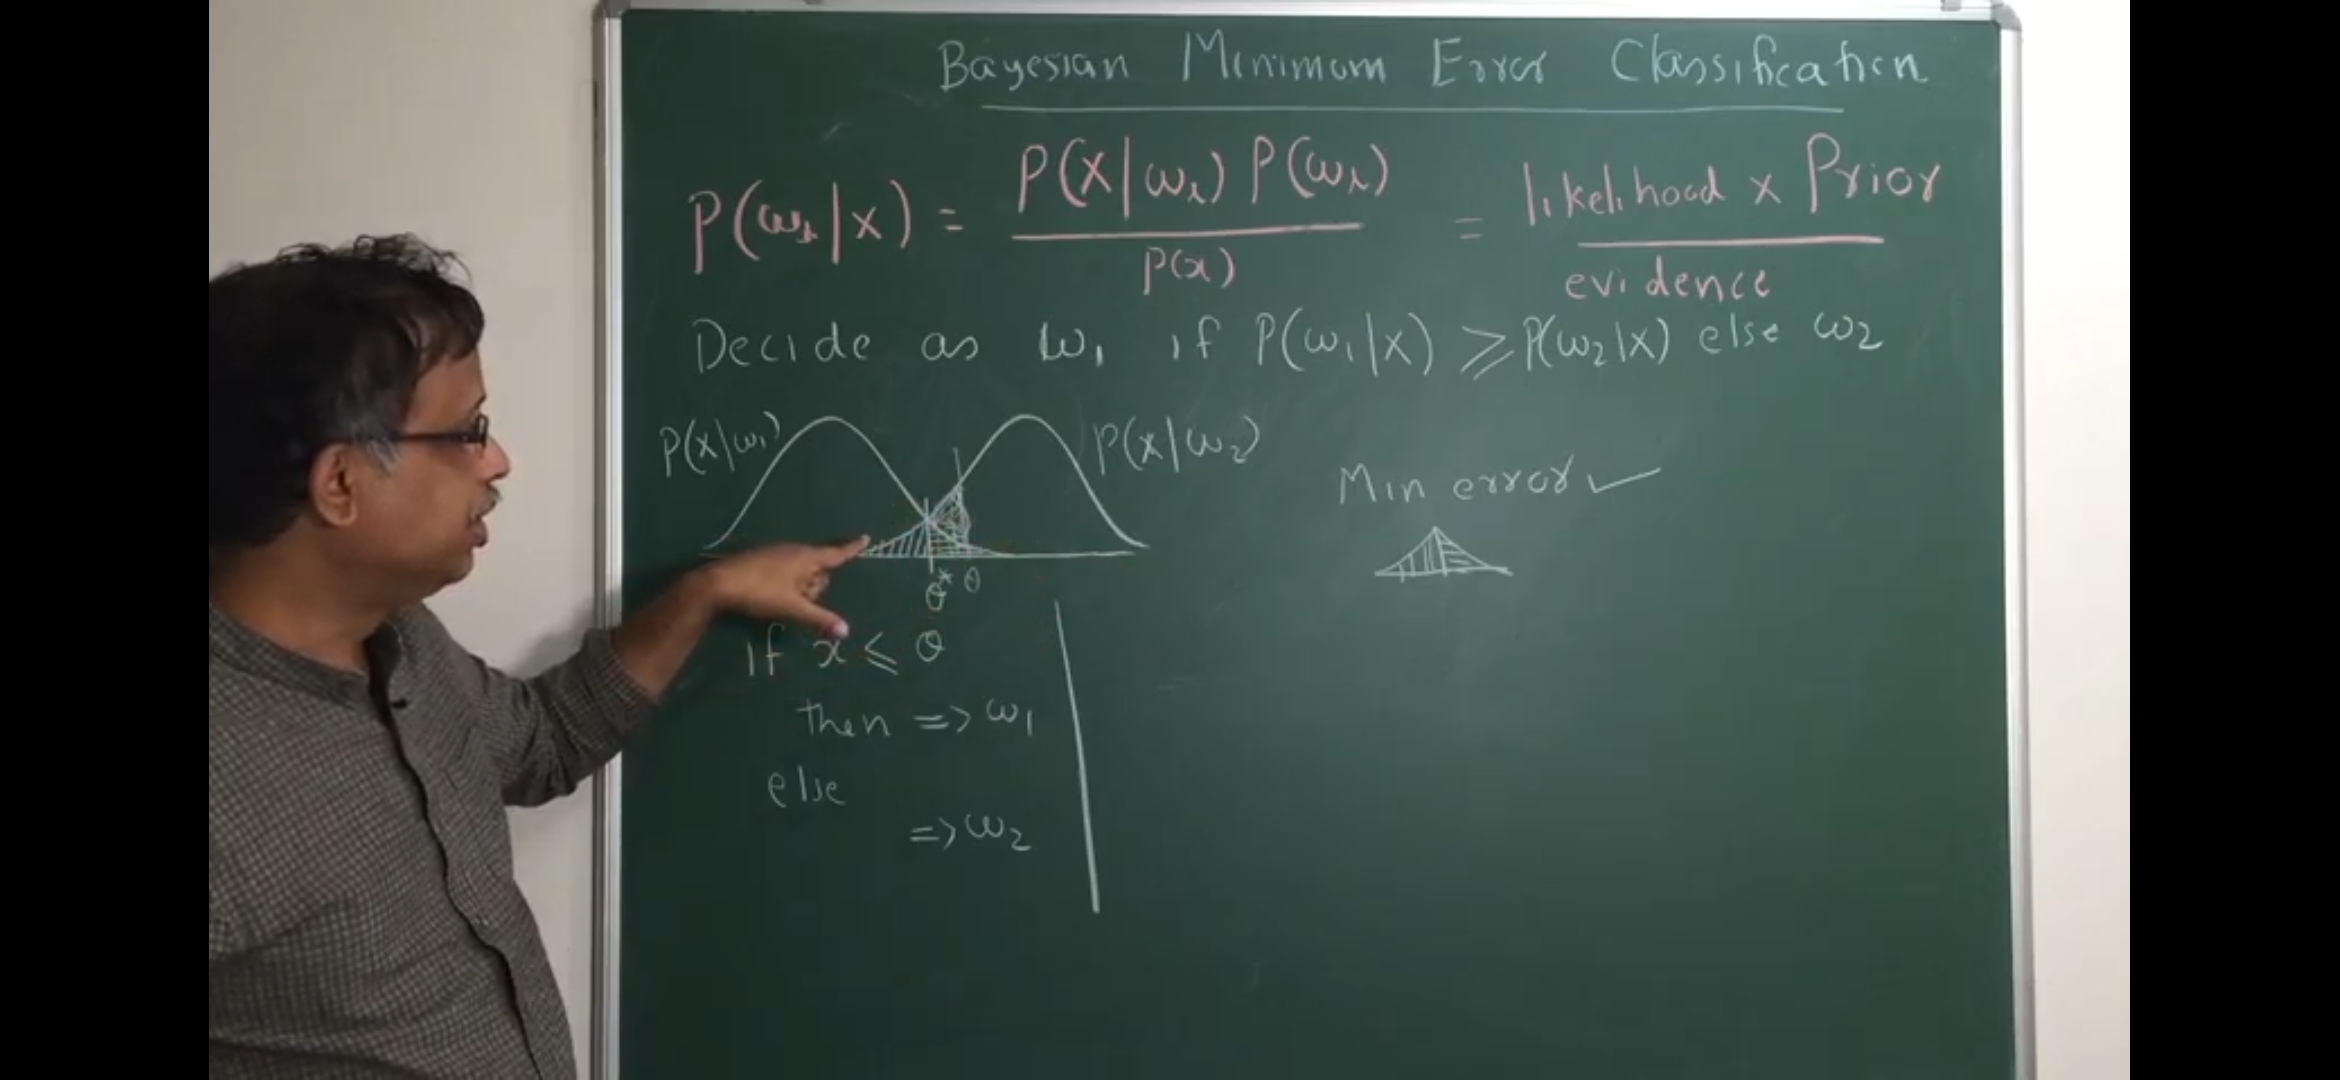 Bayesian Minimum Error Classification
P(ωᵢ|x) = P(X|ωᵢ) P(ωᵢ) / P(x) = likelihood x Prior / evidence
Decide as ω₁ if P(ω₁|X) ⩾ P(ω₂|X) else ω₂
P(X|ω₁)
P(X|ω₂)
Min error ✓
θ* θ
if x ⩽ θ
then => ω₁
else
=> ω₂